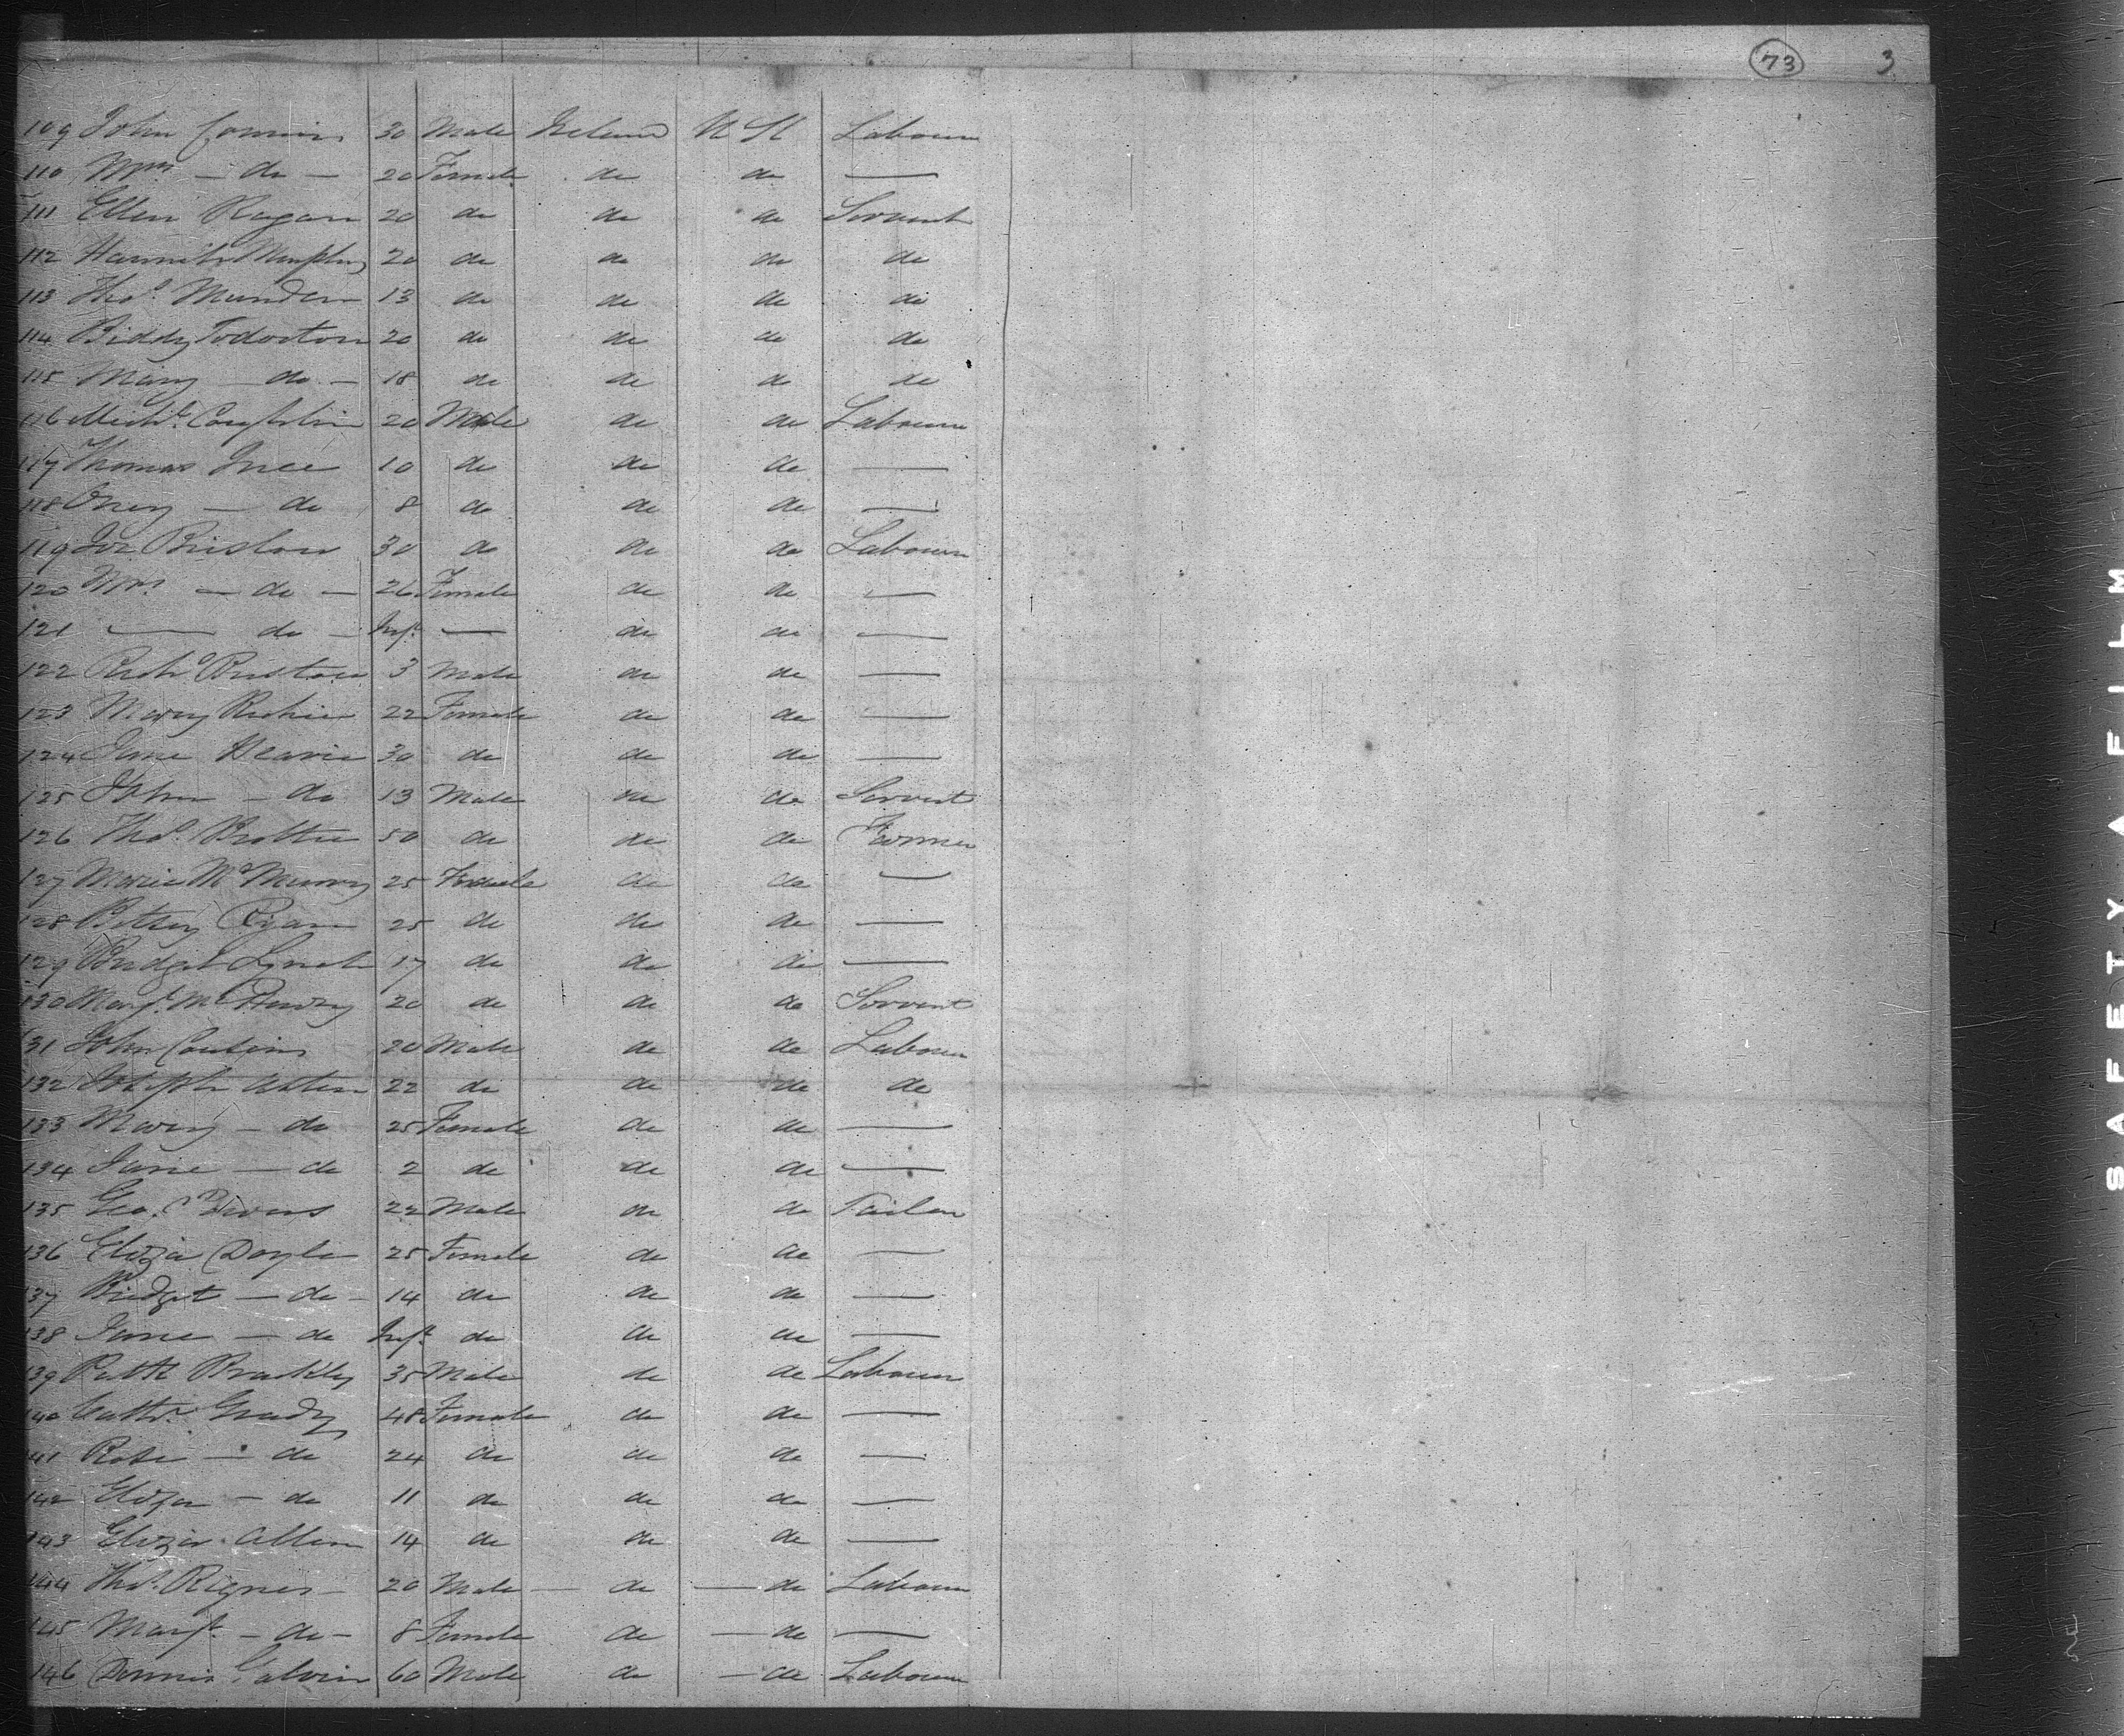 73 3
109 John 30 Male Ireland U S Labourer
110 Mrs — do — 20 Female do do —
111 Ellen Ragan 20 do do do Servant
112 Hannah Murphy 20 do do do do
113 Thos. 13 do do do do
114 Biddy 20 do do do do
115 Mary — do — 18 do do do do
116 Michl. Coughlin 20 Male do do Labourer
117 Thomas Ince 10 do do do —
118 — do 8 do do do —
119 30 do do do Labourer
120 Mrs. — do — 26 Female do do —
121 — do — Inft. — do do —
122 Richd. 3 Male do do —
123 Mary 22 Female do do —
124 Jane 30 do do do —
125 John — do 13 Male do do Servant
126 Thos. 50 do do do Farmer
127 Maria 25 Female do do —
128 Betsey Ryan 25 do do do —
129 Bridget Lynch 17 do do do —
130 Margt. 20 do do do Servant
131 John Cousins 20 Male do do Labourer
132 Joseph 22 do do do do
133 Mary — do 25 Female do do —
134 Jane — do 2 do do do —
135 Geo. 22 Male do do Tailor
136 Eliza Doyle 25 Female do do —
137 Bridget — do — 14 do do do —
138 Jane — do Inft. do do do —
139 Patk 35 Male do do Labourer
140 Cathr. Grady 48 Female do do —
141 Rose — do 24 do do do —
142 Eliza — do 11 do do do —
143 Eliza Allen 14 do do do —
144 Thos. 20 Male — do — do Labourer
145 Margt. — do — 8 Female do — do —
146 Dennis Galvin 60 Male do — do Labourer
SAFETY FILM